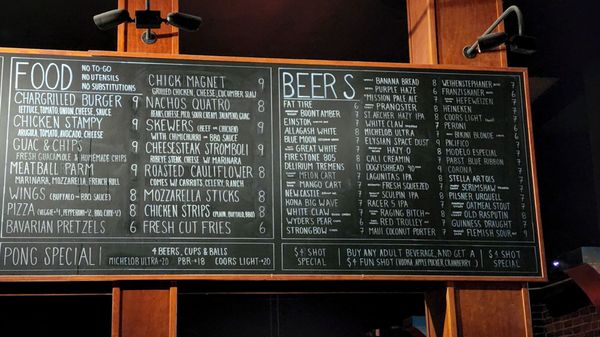 FOOD
NO TO-GO
NO UTENSILS
NO SUBSTITUTIONS
CHARGRILLED BURGER 9
LETTUCE, TOMATO, ONION, CHEESE, SAUCE
CHICKEN STAMPY 9
ARUGULA, TOMATO, AVOCADO, CHEESE
GUAC & CHIPS 9
FRESH GUACAMOLE & HOMEMADE CHIPS
MEATBALL PARM 9
MARINARA, MOZZARELLA, FRENCH ROLL
WINGS (BUFFALO or BBQ SAUCE) 8
PIZZA 8
BAVARIAN PRETZELS 6
CHICK MAGNET 9
GRILLED CHICKEN, CHEESE, CUCUMBER SLAW
NACHOS QUATRO 8
BEANS, CHEESE, PICO, SOUR CREAM, JALAPENO, GUAC
SKEWERS (BEEF or CHICKEN) 9
WITH CHIMICHURRI or BBQ SAUCE
CHEESESTEAK STROMBOLI 9
RIBEYE STEAK, CHEESE W/ MARINARA
ROASTED CAULIFLOWER 8
COMES W/ CARROTS, CELERY, RANCH
MOZZARELLA STICKS 8
CHICKEN STRIPS (PLAIN, BUFFALO, BBQ) 8
FRESH CUT FRIES 6
PONG SPECIAL!
4 BEERS, CUPS & BALLS
MICHELOB ULTRA $20 PBR $18 COORS LIGHT $20
BEERS
FAT TIRE 6
BOONT AMBER 7
EINSTOK
ALLAGASH WHITE 8
BLUE MOON
GREAT WHITE
FIRESTONE 805
DELIRIUM TREMENS
MELON CART
MANGO CART
NEWCASTLE
KONA BIG WAVE
WHITE CLAW
WYDERS PEAR
STRONGBOW
BANANA BREAD 8
PURPLE HAZE
MISSION PALE ALE
PRANQSTER
ST. ARCHER HAZY IPA
WHITE CLAW
MICHELOB ULTRA
ELYSIAN SPACE DUST
HAZY O
CALI CREAMIN
DOGFISHHEAD
LAGUNITAS IPA
FRESH SQUEEZED
SCULPIN IPA
RACER 5 IPA
RAGING BITCH
RED TROLLEY
MAUI COCONUT PORTER 7
WEIHENSTEPHANER
FRANZISKANER
HEFEWEIZEN
COORS LIGHT
PERONI
BIKINI BLONDE
PACIFICO
MODELO ESPECIAL
PABST BLUE RIBBON
CORONA
STELLA ARTOIS
SCRIMSHAW
PILSNER URQUELL
OATMEAL STOUT
OLD RASPUTIN
GUINNESS DRAUGHT
FLEMISH SOUR
$4 SHOT
SPECIAL
BUY ANY ADULT BEVERAGE, AND GET A
$4 FUN SHOT (VODKA, APPLE PUCKER, CRANBERRY)
$4 SHOT
SPECIAL